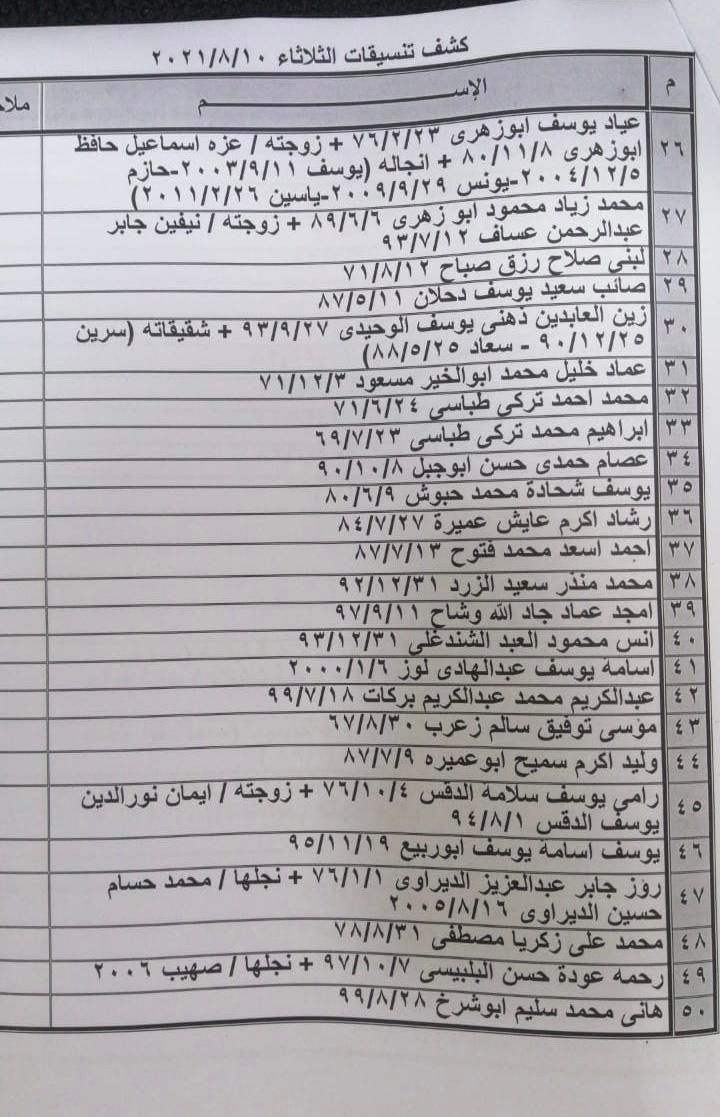 كشف تنسيقات الثلاثاء ٢٠٢١/٨/١٠
م الإســـــم
٢٦ عياد يوسف ابوزهرى ٧٦/٢/٢٣ + زوجته / عزه اسماعيل حافظ
ابوزهرى ٨٠/١١/٨ + انجاله (يوسف ٢٠٠٣/٩/١١-حازم
٢٠٠٤/١٢/٥-يونس ٢٠٠٩/٩/٢٩-ياسين ٢٠١١/٢/٢٦)
٢٧ محمد زياد محمود ابو زهرى ٨٩/٦/٦ + زوجته / نيفين جابر
عبدالرحمن عساف ٩٣/٧/١٢
٢٨ لبنى صلاح رزق صباح ٧١/٨/١٢
٢٩ صائب سعيد يوسف دحلان ٨٧/٥/١١
٣٠ زين العابدين ذهنى يوسف الوحيدى ٩٣/٩/٢٧ + شقيقاته (سرين
٩٠/١٢/٢٥ - سعاد ٨٨/٥/٢٥)
٣١ عماد خليل محمد ابوالخير مسعود ٧١/١٢/٣
٣٢ محمد احمد تركى طباسى ٧١/٦/٢٤
٣٣ ابراهيم محمد تركى طباسى ٦٩/٧/٢٣
٣٤ عصام حمدى حسن ابوجبل ٩٠/١٠/٨
٣٥ يوسف شحادة محمد حبوش ٨٠/٦/٩
٣٦ رشاد اكرم عايش عميرة ٨٤/٧/٢٧
٣٧ احمد اسعد محمد فتوح ٨٧/٧/١٣
٣٨ محمد منذر سعيد الزرد ٩٢/١٢/٣١
٣٩ امجد عماد جاد الله وشاح ٩٧/٩/١١
٤٠ انس محمود العبد الشندغلى ٩٣/١٢/٣١
٤١ اسامة يوسف عبدالهادى لوز ٢٠٠٠/١/٦
٤٢ عبدالكريم محمد عبدالكريم بركات ٩٩/٧/١٨
٤٣ موسى توفيق سالم زعرب ٦٧/٨/٣٠
٤٤ وليد اكرم سميح ابوعميره ٨٧/٧/٩
٤٥ رامى يوسف سلامة الدقس ٧٦/١٠/٤ + زوجته / ايمان نورالدين
يوسف الدقس ٩٤/٨/١
٤٦ يوسف اسامة يوسف ابوربيع ٩٥/١١/١٩
٤٧ روز جابر عبدالعزيز الديراوى ٧٦/١/١ + نجلها / محمد حسام
حسين الديراوى ٢٠٠٥/٨/١٦
٤٨ محمد على زكريا مصطفى ٧٨/٨/٣١
٤٩ رحمه عودة حسن البلبيسى ٩٧/١٠/٧ + نجلها / صهيب ٢٠٠٦
٥٠ هانى محمد سليم ابوشرخ ٩٩/٨/٢٨